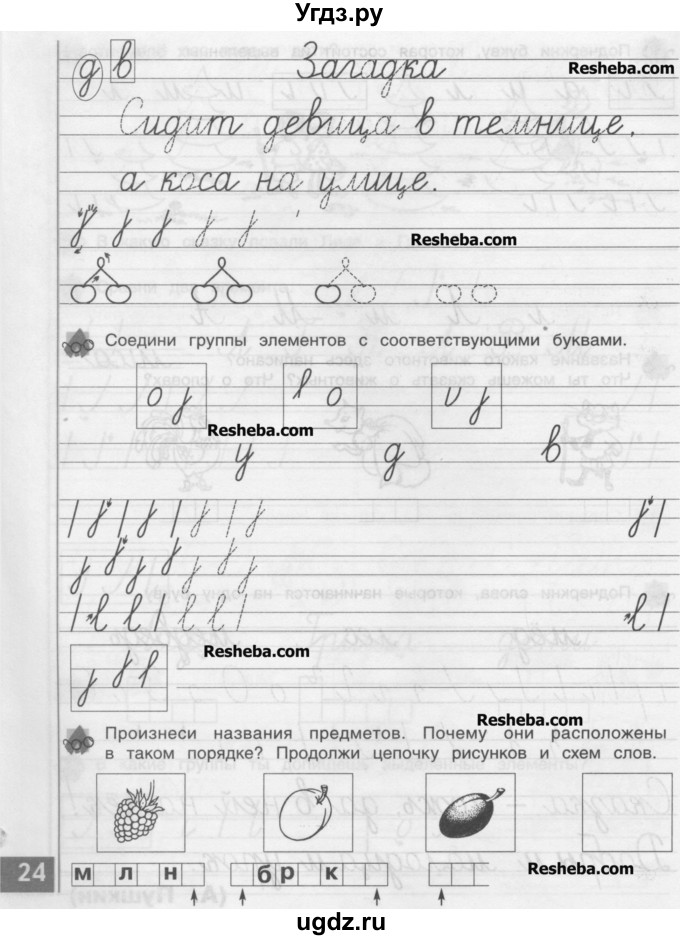 Угдз.ру
д в Загадка
Resheba.com
Сидит девица в темнице,
а коса на улице.
Resheba.com
Соедини группы элементов с соответствующими буквами.
Resheba.com
у д в
Resheba.com
Resheba.com
Произнеси названия предметов. Почему они расположены
в таком порядке? Продолжи цепочку рисунков и схем слов.
24
м л н б р к
Resheba.com
ugdz.ru